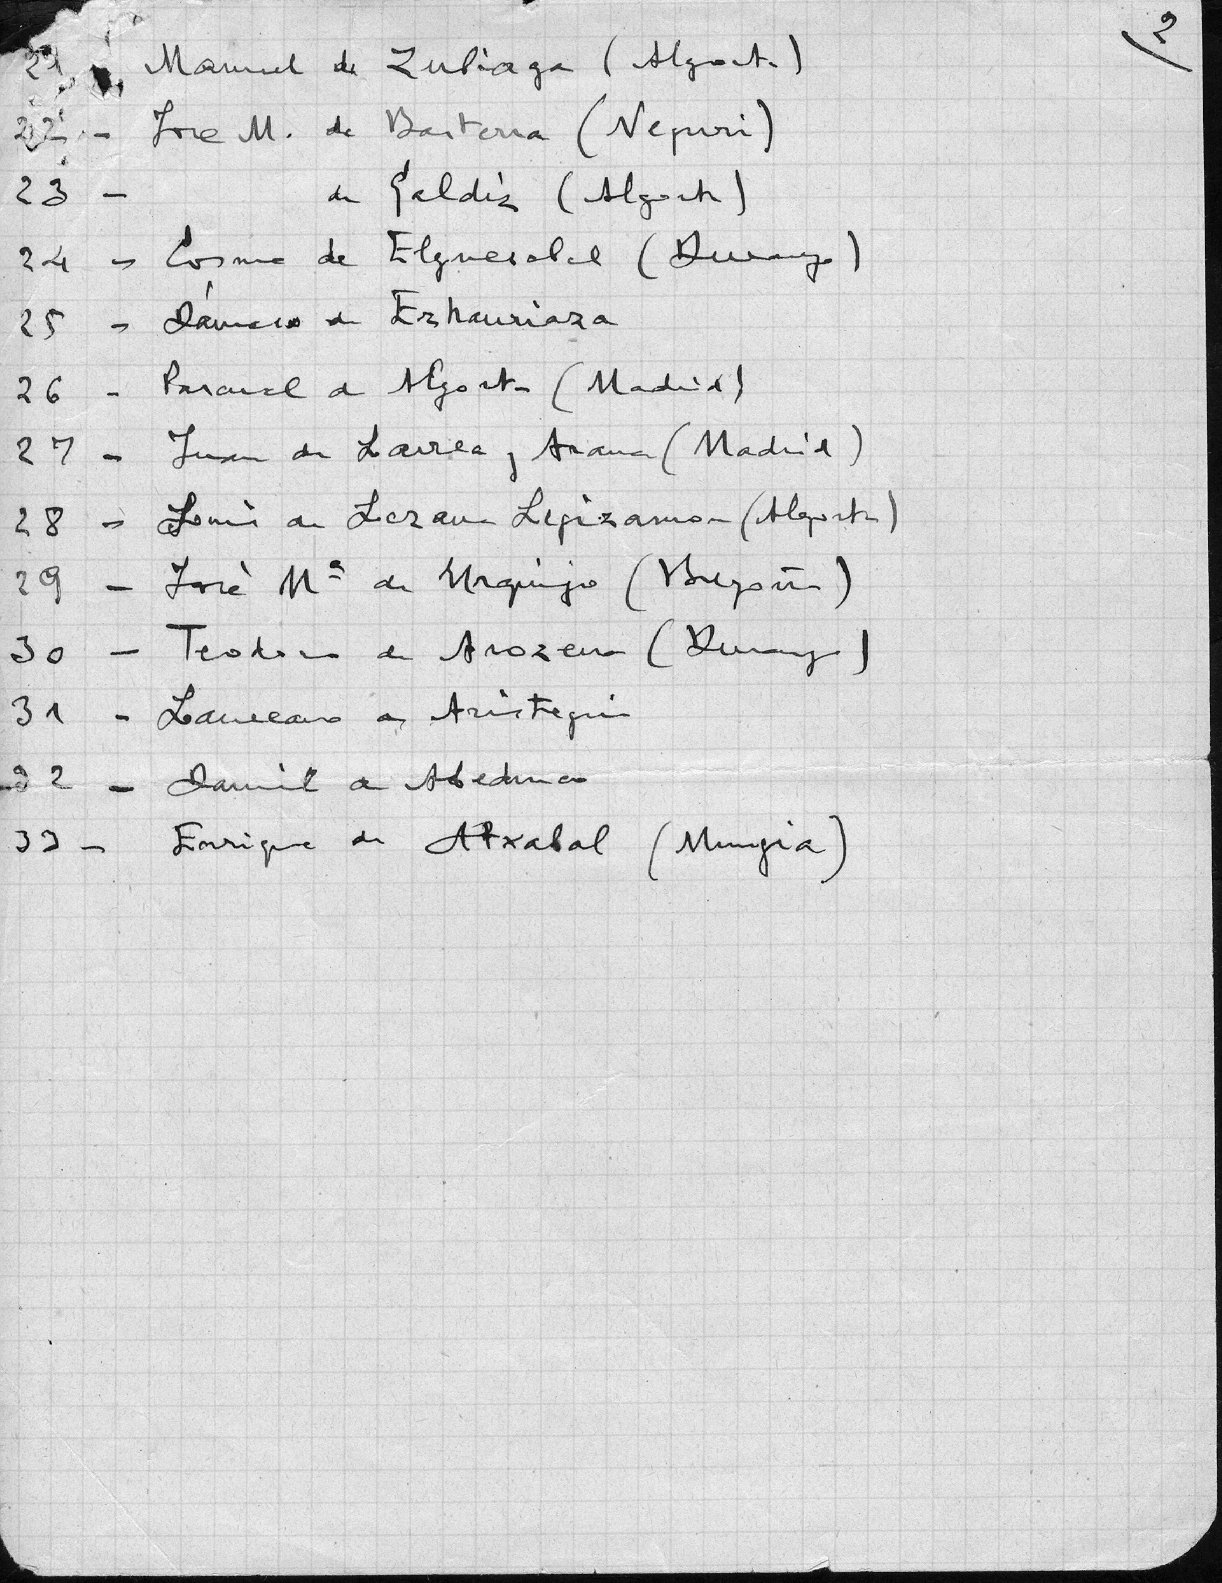 2
21 - Manuel de Zubiaga (Algorta)
22 - Jose M. de Basterra (Neguri)
23 - de Galdiz (Algorta)
24 - Cosme de Elguezabal (Durango)
25 - Dámaso de Ezkauriaza
26 - Pascual de Algorta (Madrid)
27 - Juan de Larrea y Arana (Madrid)
28 - Luis de Lezama Legizamon (Algorta)
29 - José Mª de Urquijo (Begoña)
30 - Teodoro de Arozena (Durango)
31 - Laureano de Aristegui
32 - Daniel de
33 - Enrique de Atxabal (Mungia)